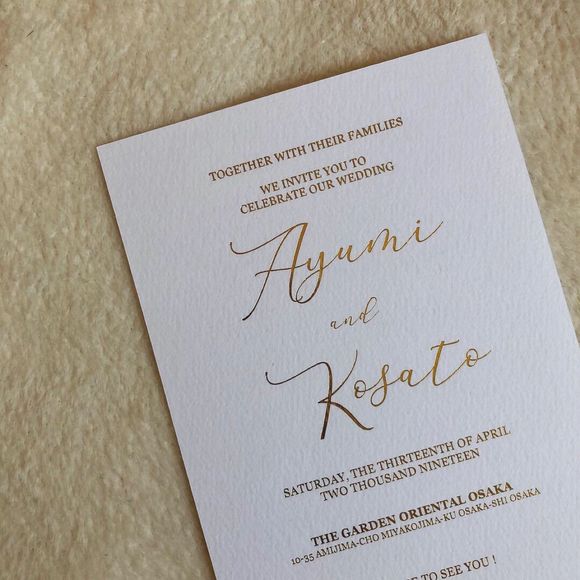 TOGETHER WITH THEIR FAMILIES
WE INVITE YOU TO
CELEBRATE OUR WEDDING
Ayumi
and
Kosato
SATURDAY, THE THIRTEENTH OF APRIL
TWO THOUSAND NINETEEN
THE GARDEN ORIENTAL OSAKA
10-35 AMIJIMA-CHO MIYAKOJIMA-KU OSAKA-SHI OSAKA
TO SEE YOU !